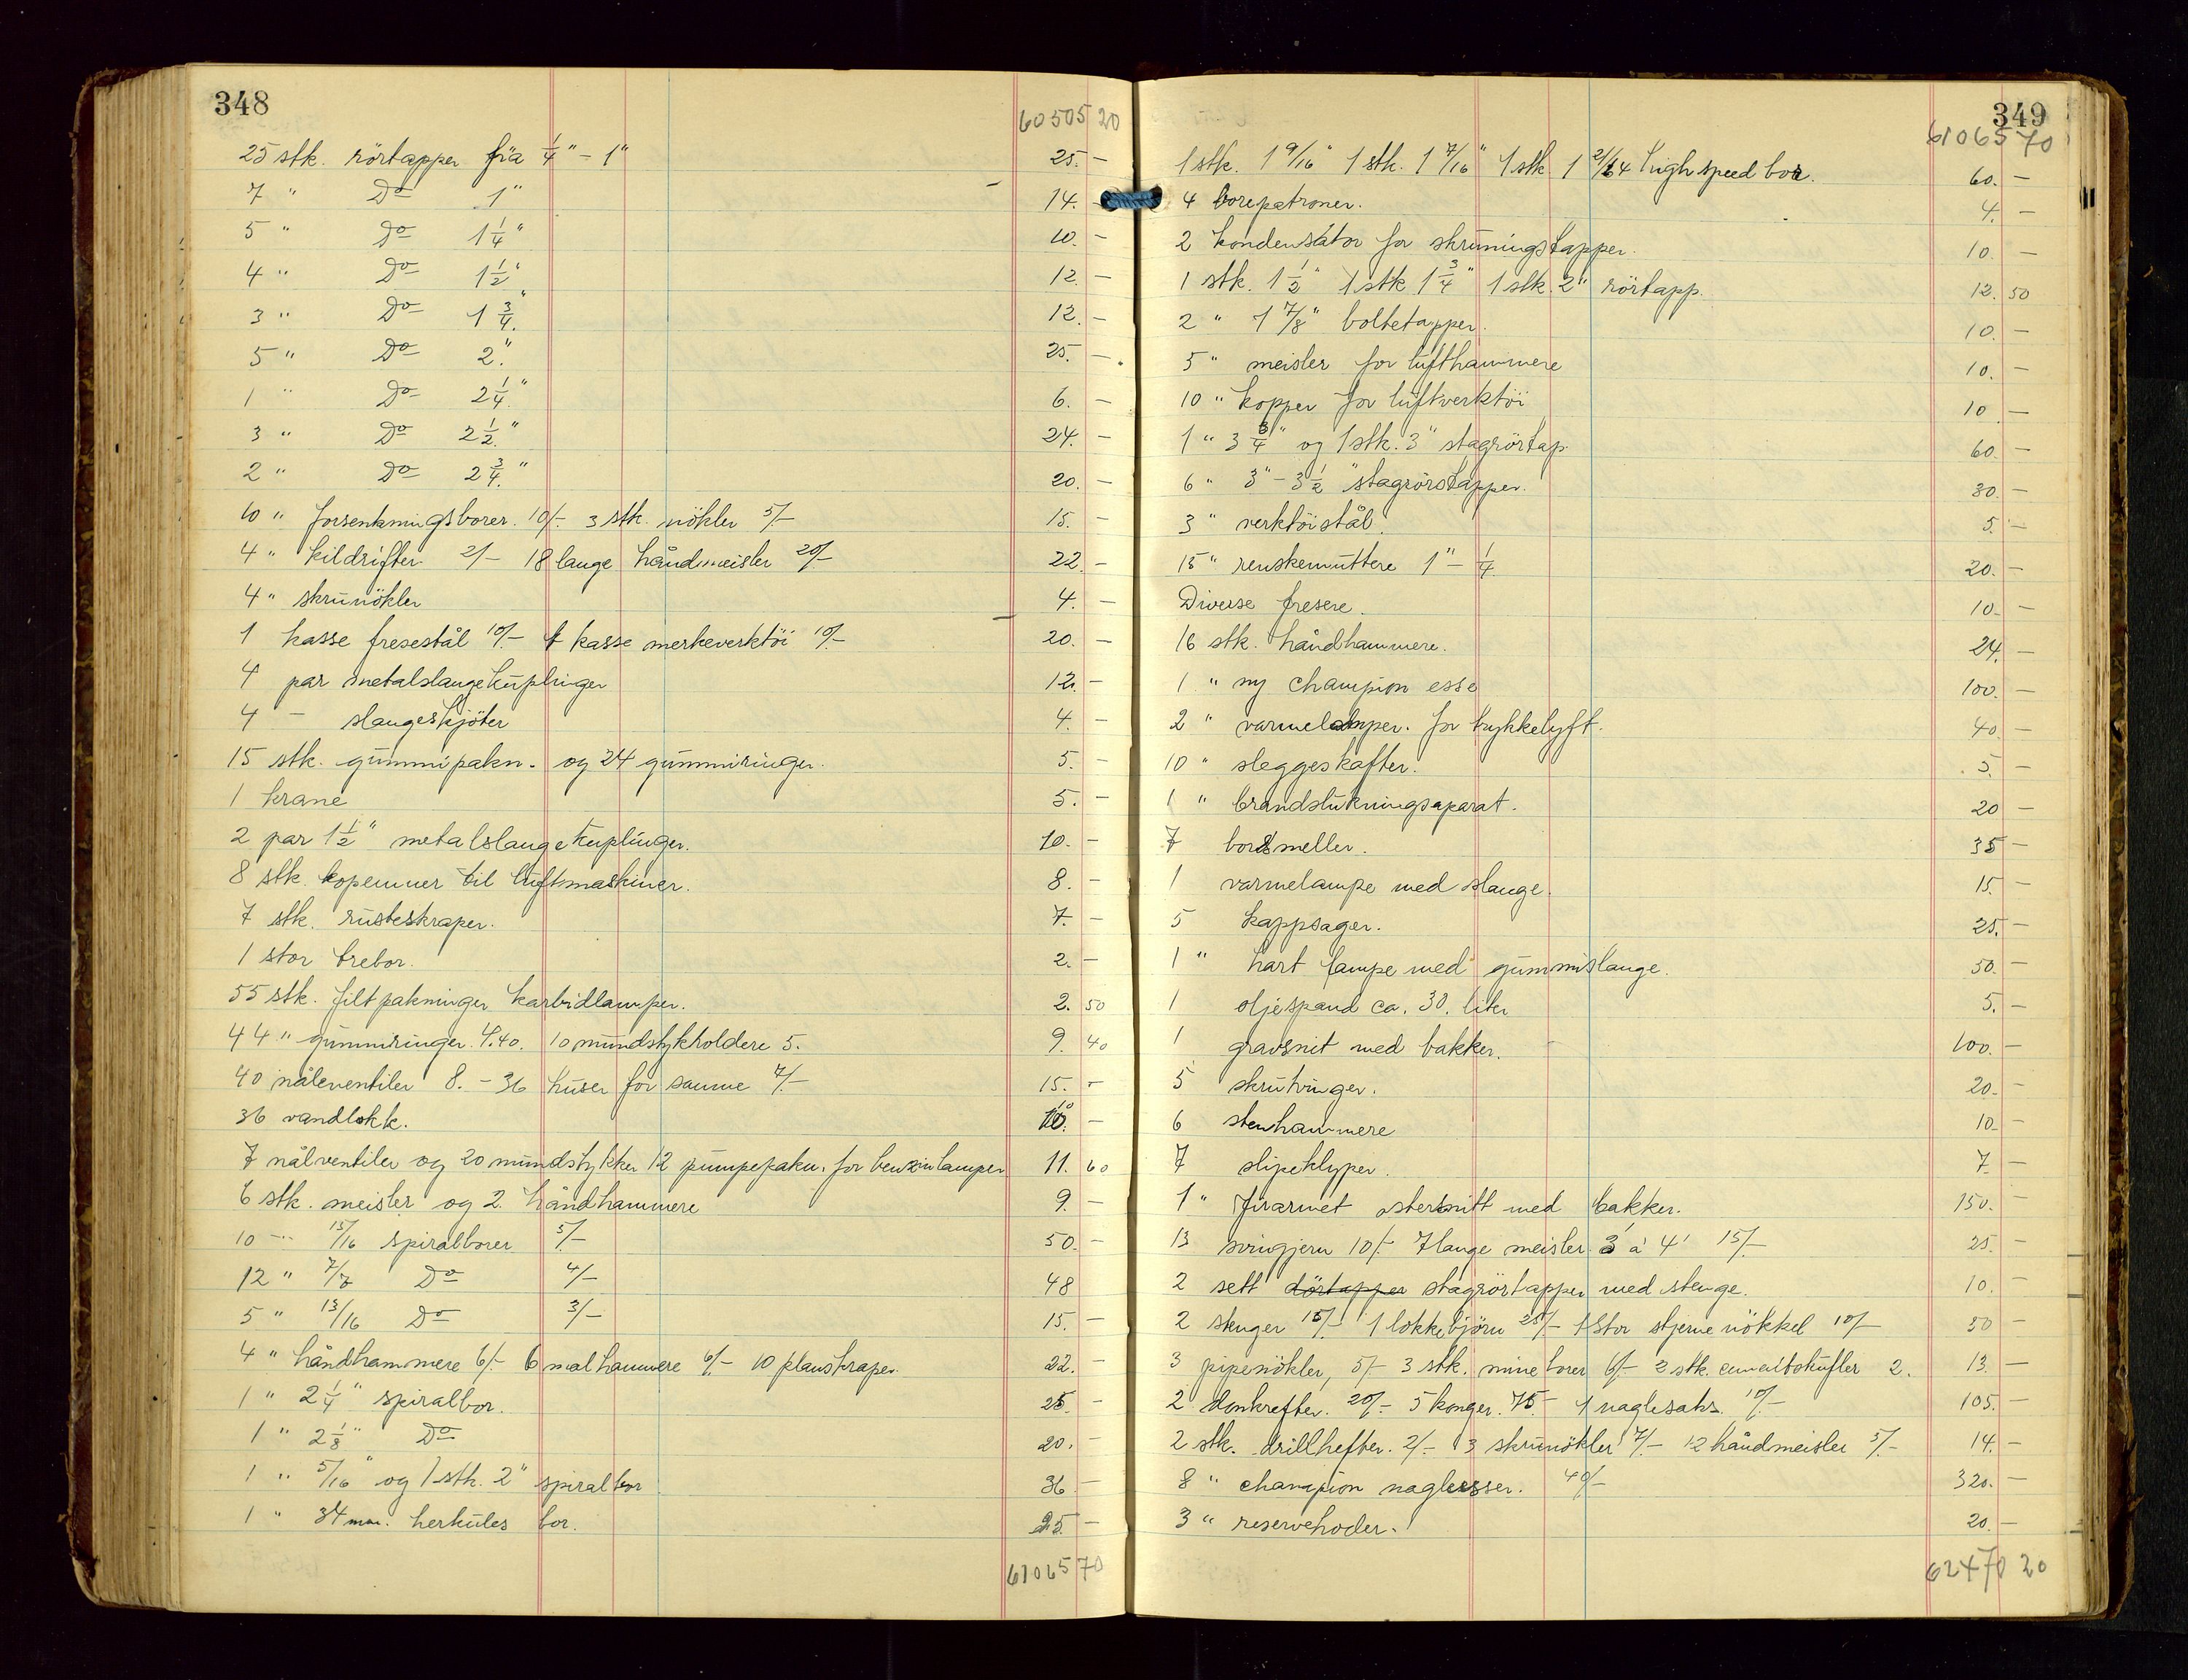 348
60505 20
25 stk. rörtapper fra 1/4" - 1" 25. -
7 " Do 1" 14. -
5 " Do 1 1/4" 10. -
4 " Do 1 1/2" 12. -
3 " Do 1 3/4" 12. -
5 " Do 2" 25. -
1 " Do 2 1/4" 6. -
3 " Do 2 1/2" 24. -
2 " Do 2 3/4" 20. -
10 " forsenkningsborer. 10/- 3 stk. nökler 5/- 15. -
4 " kildrifter 2/- 18 lange håndmeisler 20/- 22. -
4 " skrunökler 4. -
1 kasse fresestål 10/- 1 kasse merkeverktöi 10/- 20. -
4 par metalslangekuplinger 12. -
4 - slangeskjöter 4. -
15 stk. gummipakn. og 24 gummiringer. 5. -
1 krane 5. -
2 par 1 1/2" metalslangekuplinger. 10. -
8 stk. kopemner til luftmaskiner. 8. -
7 stk. rusteskraper. 7. -
1 stor trebor. 2. -
55 stk. filtpakninger karbidlamper. 2. 50
44 " gummiringer. 4.40. 10 mundstykholdere 5. 9. 40
40 nåleventiler 8. - 36 huser for samme 7/- 15. -
36 vandlokk. 10. -
7 nålventiler og 20 mundstykker 12 pumpepakn. for benzinlamper 11. 60
6 stk. meisler og 2 håndhammere 9. -
10 " 15/16 spiralborer 5/- 50. -
12 " 7/8 Do 4/- 48
5 " 13/16 Do 3/- 15. -
4 " håndhammere 6/- 6 malhammere 6/- 10 planskraper. 22. -
1 " 2 1/4" spiralbor. 25. -
1 " 2 1/8" Do 20. -
1 " 5/16" og 1 stk. 2" spiralbor 36 -
1 " 34 mm. herkules bor. 25. -
61065 70
349
61065 70
1 stk. 1 9/16" 1 stk. 1 7/16" 1 stk 1 21/64 high speed bor. 60. -
4 borepatroner. 4. -
2 kondensator for skruningstapper. 10. -
1 stk. 1 1/2" 1 stk 1 3/4" 1 stk. 2" rörtapp. 12. 50
2 " 1 7/8" boltetapper. 10. -
5 " meisler for lufthammere 10. -
10 " kopper for luftverktöi 10. -
1 " 3 3/4" og 1 stk. 3" stagrörtap. 60. -
6 " 3" - 3 1/2" stagrörstapper. 30. -
3 " verktöistål. 5. -
15 " renskemuttere 1" - 1/4 20. -
Diverse fresere. 10. -
16 stk. håndhammere. 24. -
1 " ny champion esse 100. -
2 " varmelamper. for trykkelyft. 40. -
10 " sleggeskafter. 5. -
1 " brandslukningsaparat. 20 -
7 borsmeller. 35 -
1 varmelampe med slange. 15. -
5 kappsager. 25. -
1 " hart lampe med gummislange. 50. -
1 oljespand ca. 30. liter 5. -
1 gravsnit med bakker. 100. -
5 skrutvinger. 20. -
6 stenhammere 10. -
7 slipeklyper. 7. -
1 " Firarmet stersnitt med bakker. 150. -
13 svingjern 10/- 7 lange meisler 3 á 4' 15/- 25. -
2 sett dörtapper stagrörtapper med stenge. 10. -
2 stenger 15/- 1 lokkebjörn 25/- 1 stor stjernenökkel 10/- 50 -
3 pipenökler, 5/- 3 stk. mineborer 6/- 2 stk. 2. 13. -
2 donkrefter. 20/- 5 konger. 75.- 1 naglesaks. 10/- 105. -
2 stk. drillhefter. 2/- 3 skrunökler 7/- 12 håndmeisler 5/- 14. -
8 " champion nagleesser. 40/- 320. -
3 " reservehoder. 20. -
62470 20